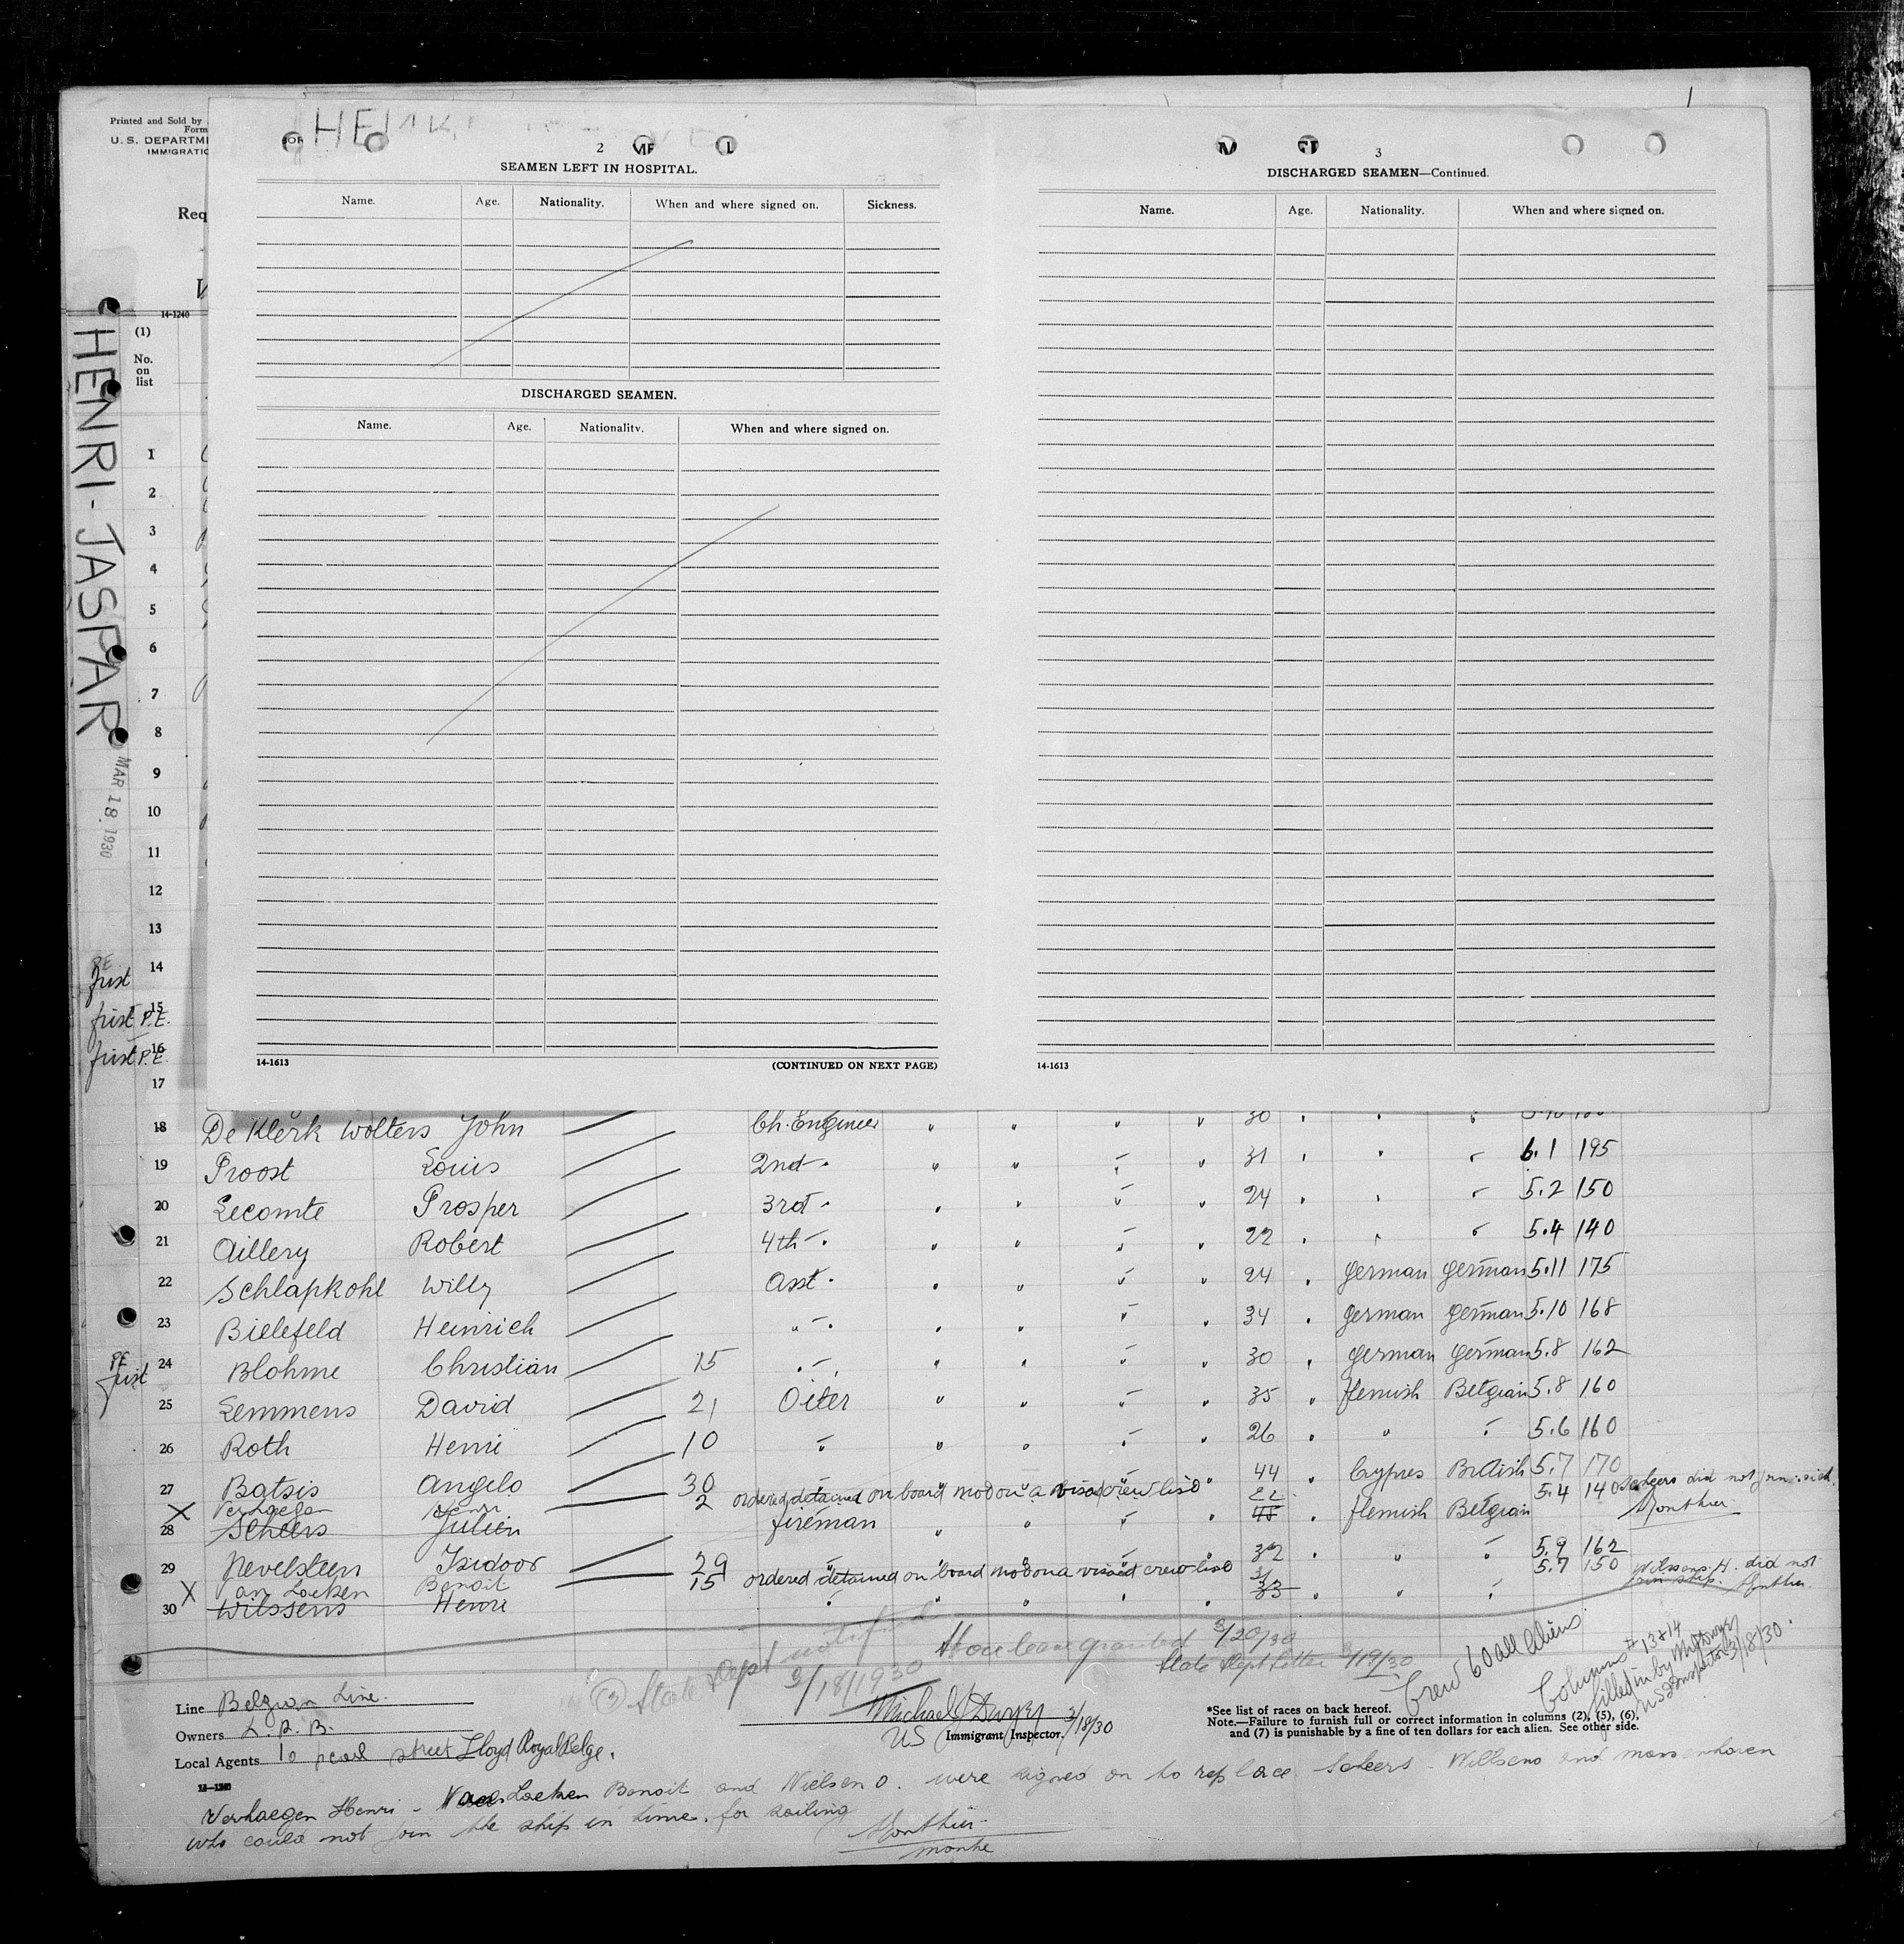 Printed and Sold by
Form
U. S. DEPARTM
IMMIGRATIO
Req
14-1240
(1)
No.
on
list
HENRI-JASPAR
MAR 18 1930
2
SEAMEN LEFT IN HOSPITAL.
Name. Age. Nationality. When and where signed on. Sickness.
DISCHARGED SEAMEN.
Name. Age. Nationality. When and where signed on.
14-1613 (CONTINUED ON NEXT PAGE)
3
DISCHARGED SEAMEN—Continued.
Name. Age. Nationality. When and where signed on.
14-1613
1
2
3
4
5
6
7
8
9
10
11
12
13
14
first P.E. 15
first P.E. 16
17
18 De Klerk Wolters John Ch. Engineer " " " " 30
19 Proost Louis 2nd " " " " " 31 " " " 6.1 195
20 Lecomte Prosper 3rd " " " " " 24 " " " 5.2 150
21 Aillery Robert 4th " " " " " 22 " " " 5.4 140
22 Schlapkohl Willy Asst. " " " " 24 " German German 5.11 175
23 Bielefeld Heinrich " " " " " 34 " German German 5.10 168
PE first 24 Blohme Christian 15 " " " " " 30 " German German 5.8 162
25 Lemmens David 21 Oiler " " " " 35 " flemish Belgian 5.8 160
26 Roth Henri 10 " " " " " 26 " " " 5.6 160
27 Batsis Angelo 30 " " " " " 44 " Cypres British 5.7 170
X Verhaegen Henri 2 ordered detained on board not on a visaed crew list 22 5.4 140 Scheers did not join: sick
28 Scheers Julien fireman " " " " 48 " flemish Belgian Monthei
29 Nevelsteen Isidoor 29 " " " " " 32 " " " 5.9 162
X Van Loeken Benoit 15 ordered detained on board not on a visaed crew list 31 5.7 150 Wilssens H. did not
30 Wilssens Henri " " " " " 33 " " " join ship.
Shore leave granted 3/20/30
State Dept letter 3/19/30
State Dept notified
3/18/1930
Crew 60 all Aliens
Columns # 13 & 14
filled in by
US Inspector 3/18/30.
Line Belgian Line.
Owners L. R. B.
Local Agents 10 pearl street Lloyd Royal Belge.
14-1240
Michael J Dwyer 3/18/30
US Immigrant Inspector.
*See list of races on back hereof.
Note.—Failure to furnish full or correct information in columns (2), (5), (6),
and (7) is punishable by a fine of ten dollars for each alien. See other side.
Verhaegen Henri - Van Loeken Benoit and Nielsen O. were signed on to replace Scheers - Willsens and
who could not join the ship in time for sailing